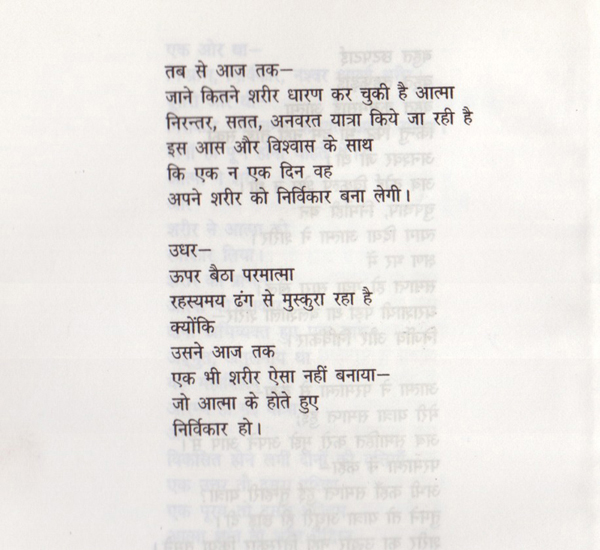 तब से आज तक–
जाने कितने शरीर धारण कर चुकी है आत्मा
निरन्तर, सतत, अनवरत यात्रा किये जा रही है
इस आस और विश्वास के साथ
कि एक न एक दिन वह
अपने शरीर को निर्विकार बना लेगी।
उधर–
ऊपर बैठा परमात्मा
रहस्यमय ढंग से मुस्कुरा रहा है
क्योंकि
उसने आज तक
एक भी शरीर ऐसा नहीं बनाया–
जो आत्मा के होते हुए
निर्विकार हो।